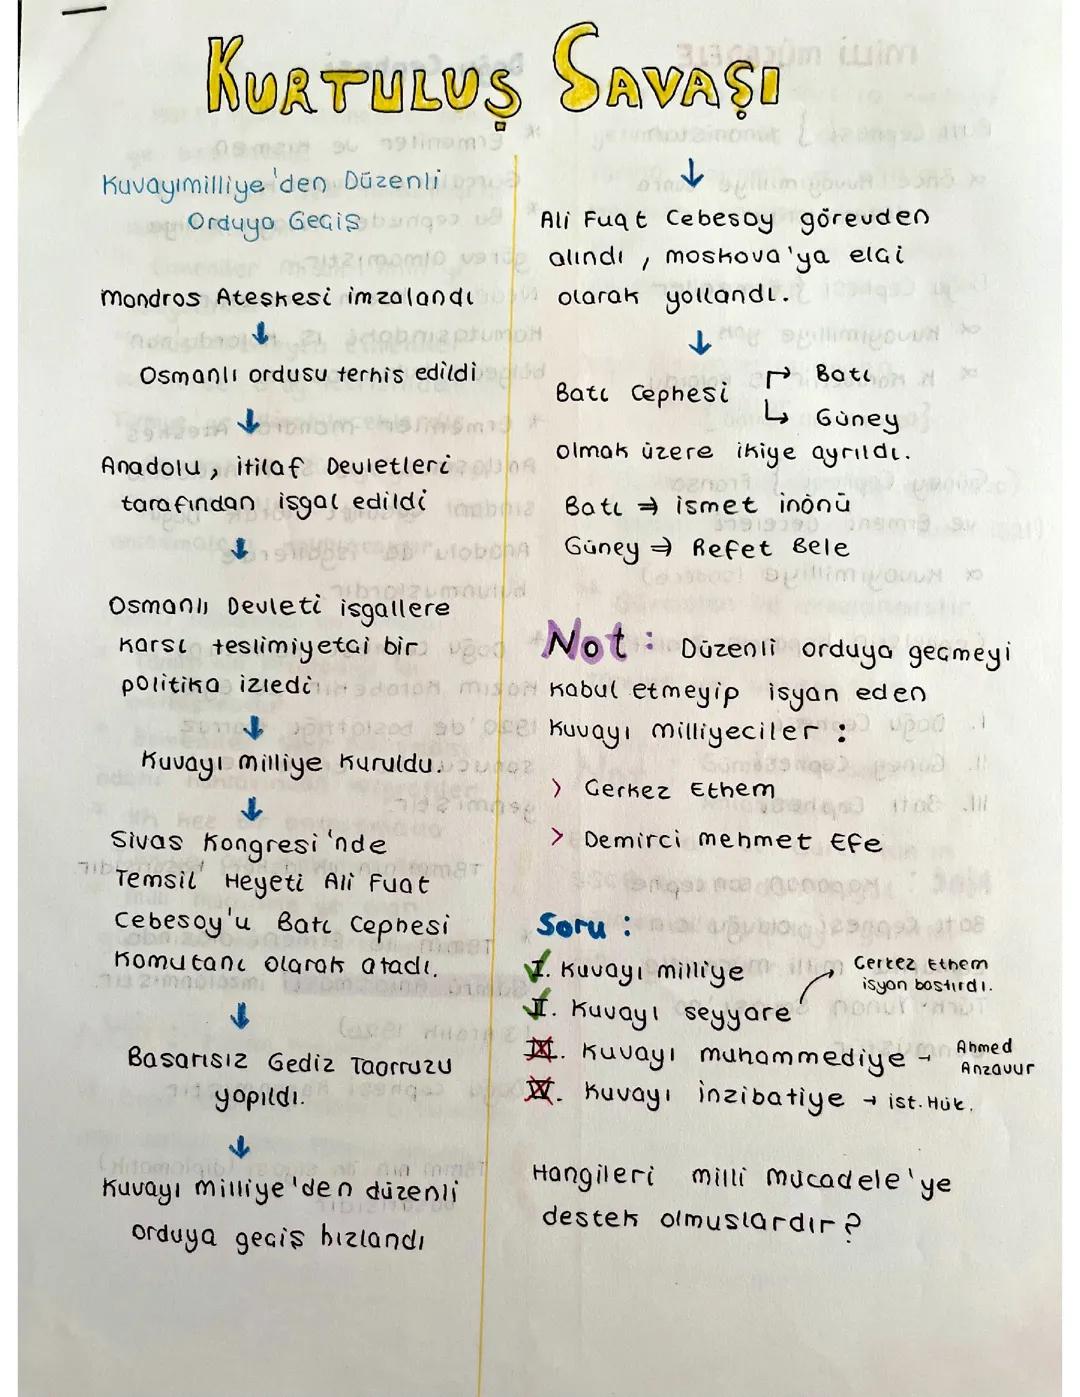 KURTULUŞ SAVAŞI
Kuvayımilliye'den Düzenli
Orduya Geçiş
Mondros Ateşkesi imzalandı
↓
Osmanlı ordusu terhis edildi
↓
Anadolu, itilaf Devletleri
tarafından işgal edildi
↓
Osmanlı Devleti işgallere
karşı teslimiyetçi bir
politika izledi
↓
Kuvayı milliye Kuruldu.
↓
Sivas Kongresi'nde
Temsil Heyeti Ali Fuat
Cebesoy'u Batı Cephesi
Komutanı olarak atadı.
↓
Başarısız Gediz Taarruzu
yapıldı.
↓
Kuvayı Milliye'den düzenli
orduya geçiş hızlandı
↓
Ali Fuat Cebesoy görevden
alındı, moskova'ya elçi
olarak yollandı.
↓
Batı Cephesi → Batı
→ Güney
olmak üzere ikiye ayrıldı.
Batı ⇒ ismet inönü
Güney ⇒ Refet Bele
Not: Düzenli orduya geçmeyi
kabul etmeyip isyan eden
Kuvayı milliyeciler:
> Çerkez Ethem
> Demirci mehmet Efe
Soru:
I. Kuvayı milliye
II. Kuvayı seyyare → Çerkez Ethem
isyan bastırdı.
III. Kuvayı muhammediye → Ahmed
Anzavur
IV. Kuvayı inzibatiye → ist. Hük.
Hangileri milli mücadele'ye
destek olmuşlardır?